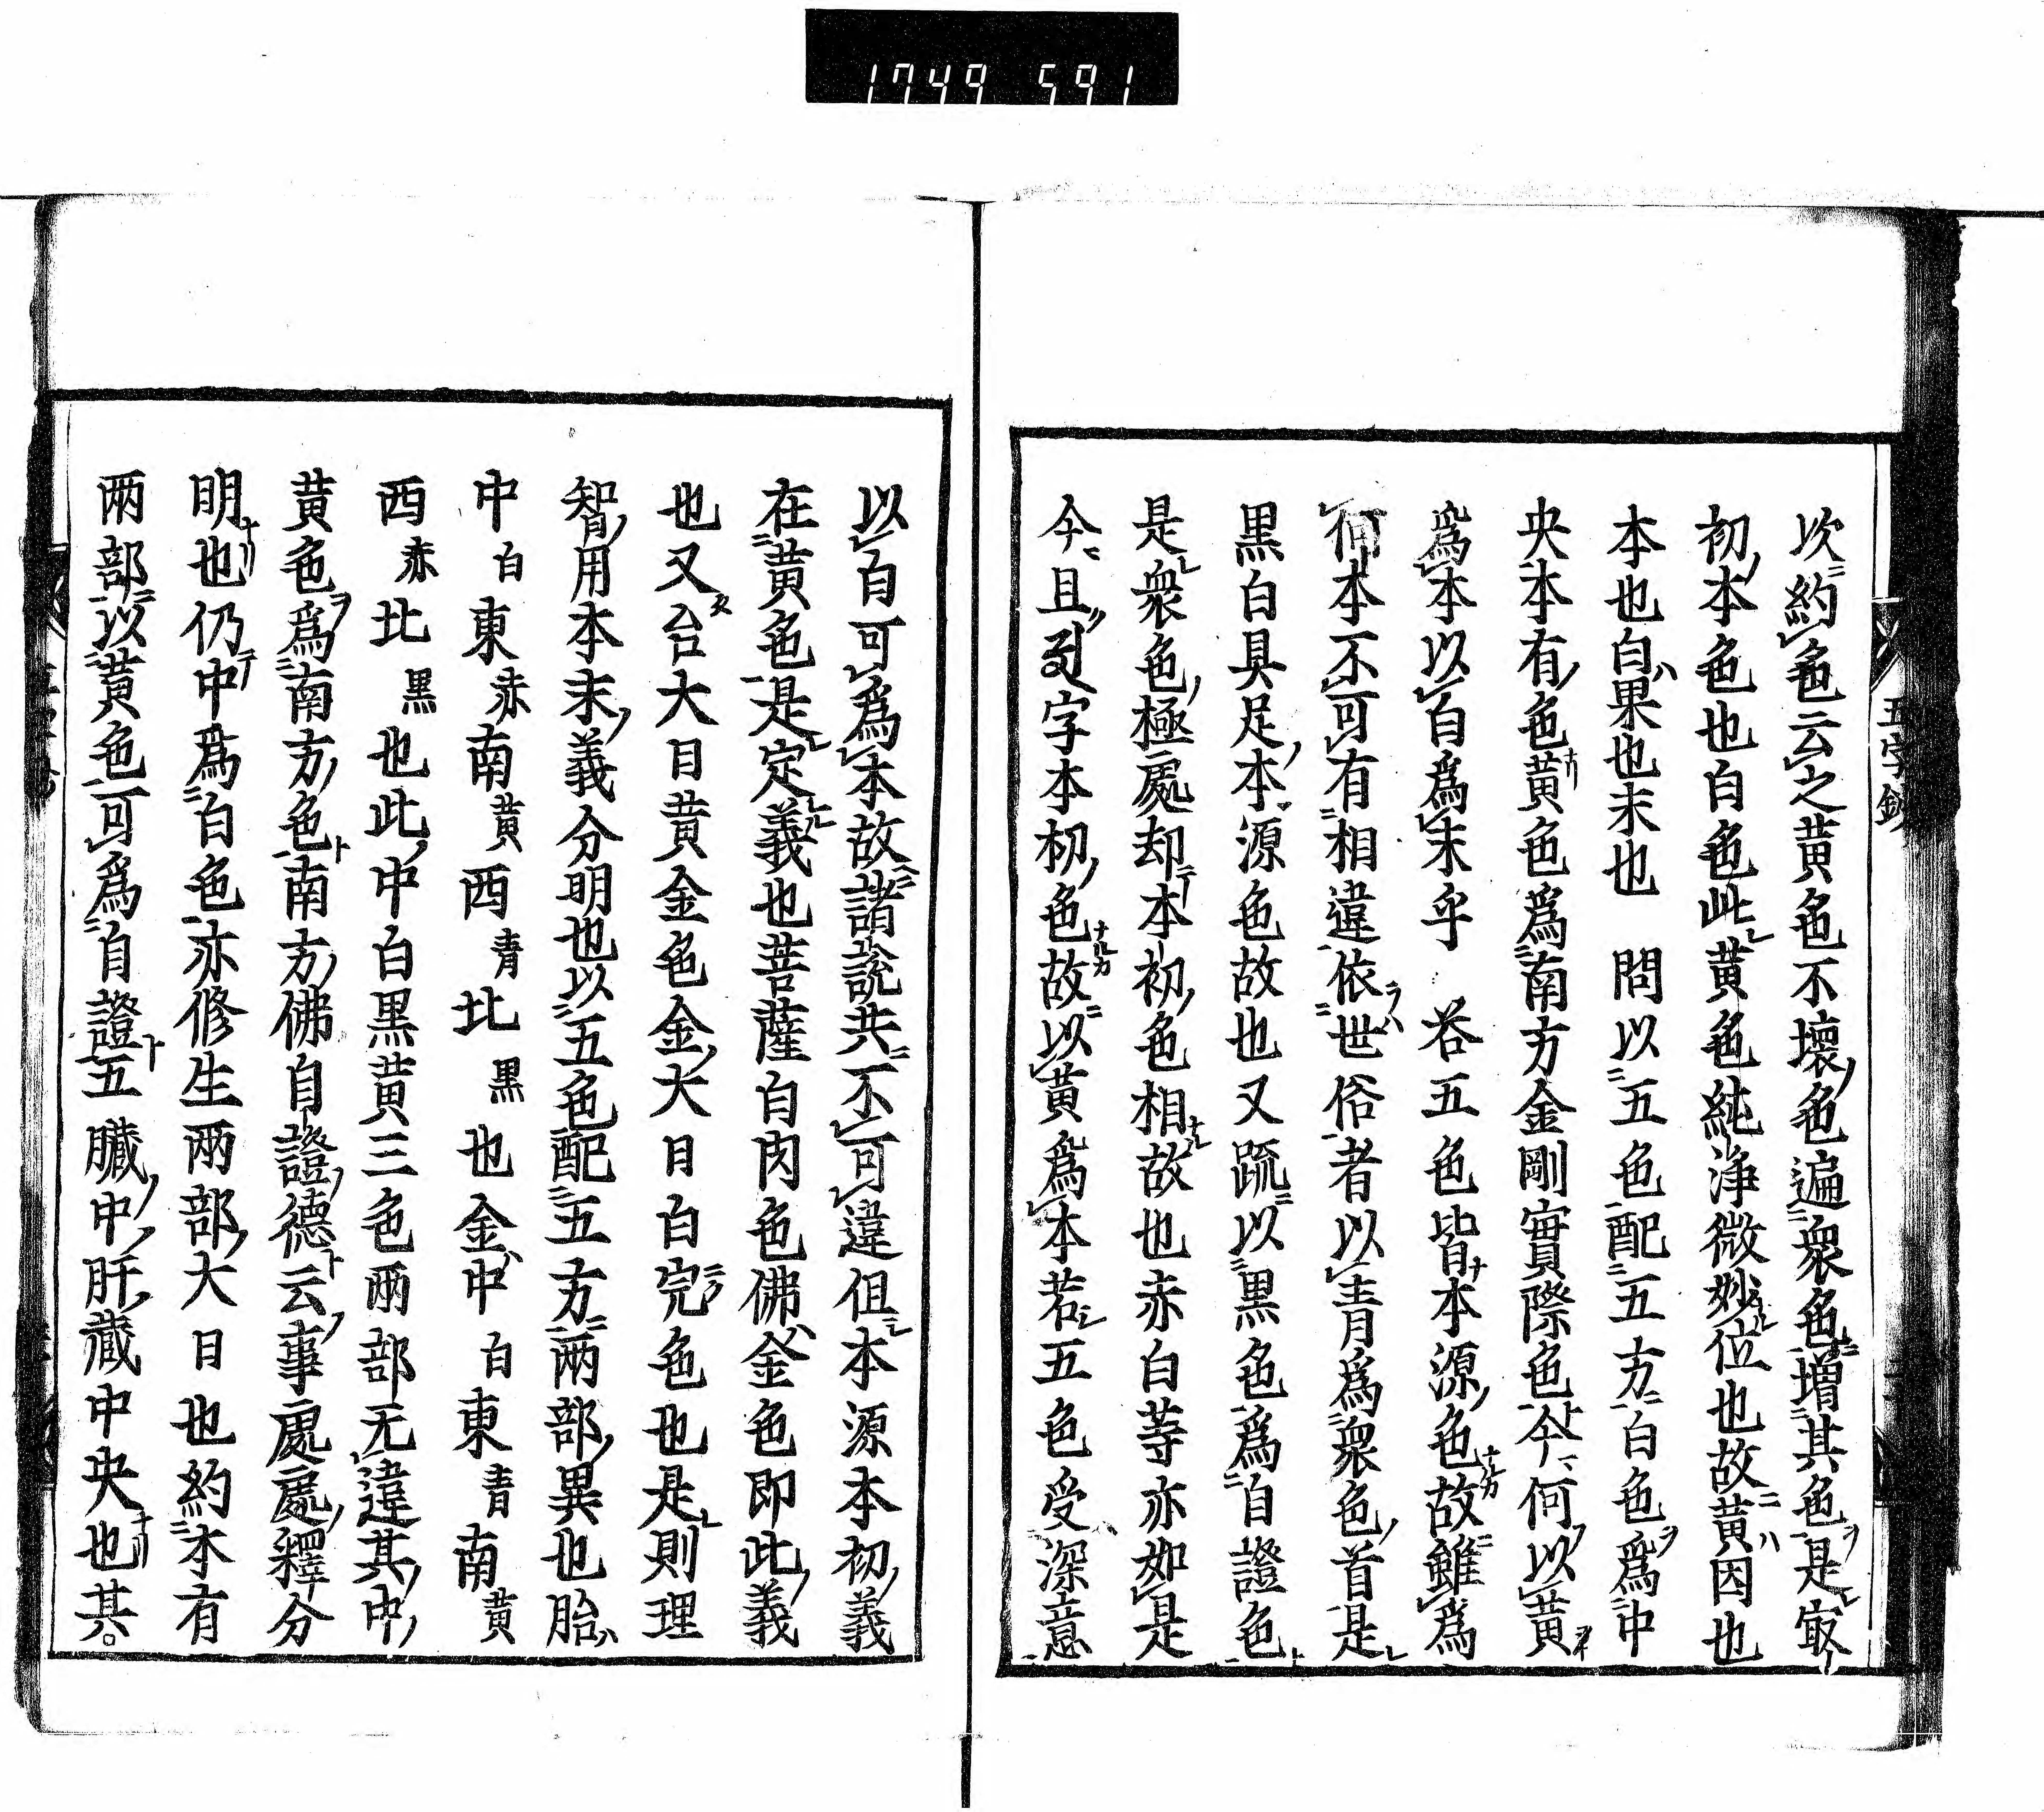 1749 591
五字鈔
次約色云之黄色不壞色遍衆色増其色是㝡
初本色也白色此黄色純浄微妙位也故黄因也
本也白果也末也　問以五色配五方白色爲中
央本有色黄色爲南方金剛實際色今何以黄
爲本以白爲末乎　荅五色皆本源色故雖爲
何本不可有相違依世俗者以青爲衆色首是
黒白具足本源色故也又䟽以黒色爲自證色
是衆色極處却本初色相故也赤白䓁亦如是
今且字本初色故以黄爲本若五色受深意
以白可爲本故諸説共不可違但本源本初義
在黄色是定義也菩薩白肉色佛金色即此義
也又台大日黄金色金大日白完色也是則理
智用本末義分明也以五色配五方兩部異也胎
中白東赤南黄西青北黒也金中白東青南黄
西赤北黒也此中白黒黄三色兩部无違其中
黄色爲南方色南方佛自證德云事處處釋分
明也仍中爲白色亦修生兩部大日也約本有
兩部以黄色可爲自證五臓中肝藏中央也其